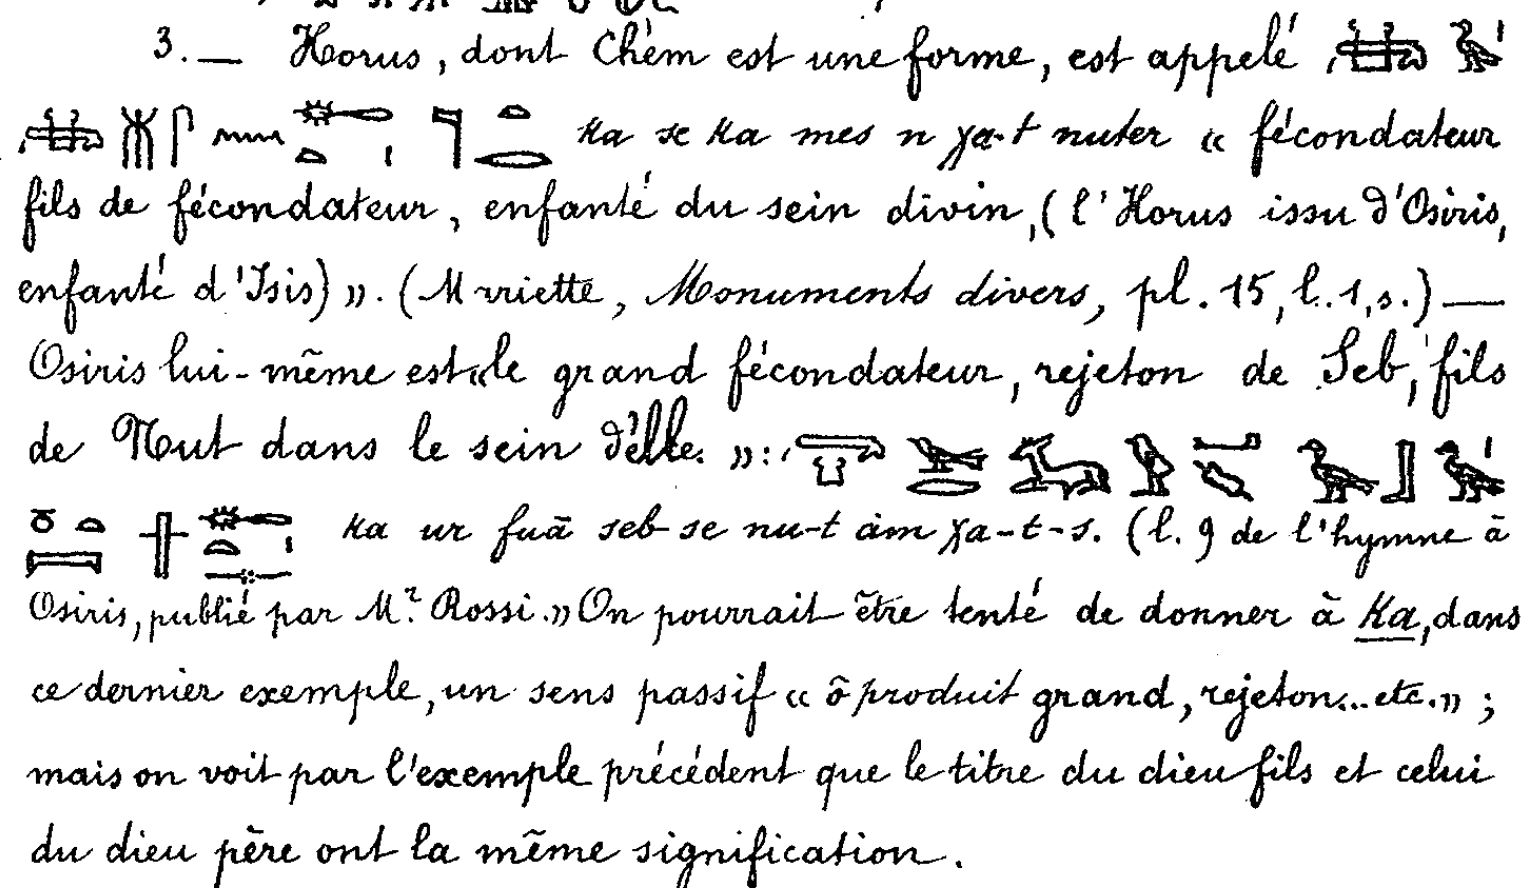 3. — Horus, dont Chem est une forme, est appelé
ka se ka mes n χa-t nuter « fécondateur
fils de fécondateur, enfanté du sein divin, (l'Horus issu d'Osiris,
enfanté d'Isis) ». (Mariette, Monuments divers, pl. 15, l. 1, s.) —
Osiris lui-même est « le grand fécondateur, rejeton de Seb, fils
de Nut dans le sein d'elle. » :
ka ur fuā seb se nu-t àm χa-t-s. (l. 9 de l'hymne à
Osiris, publié par Mr. Rossi. » On pourrait être tenté de donner à ka, dans
ce dernier exemple, un sens passif « ô produit grand, rejeton... etc. » ;
mais on voit par l'exemple précédent que le titre du dieu fils et celui
du dieu père ont la même signification.